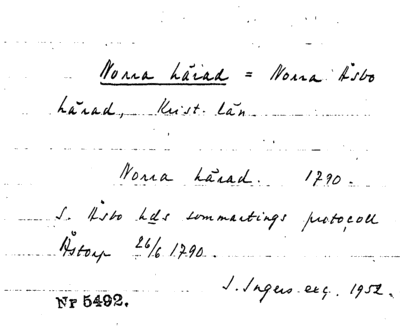 Norra härad = Norra Åsbo
härad, Krist. län
Norra härad. 1790.
S. Åsbo hds sommartings protocoll
Åstorp 26/6 1790.
I. Ingers exc. 1952.
Nr 5492.